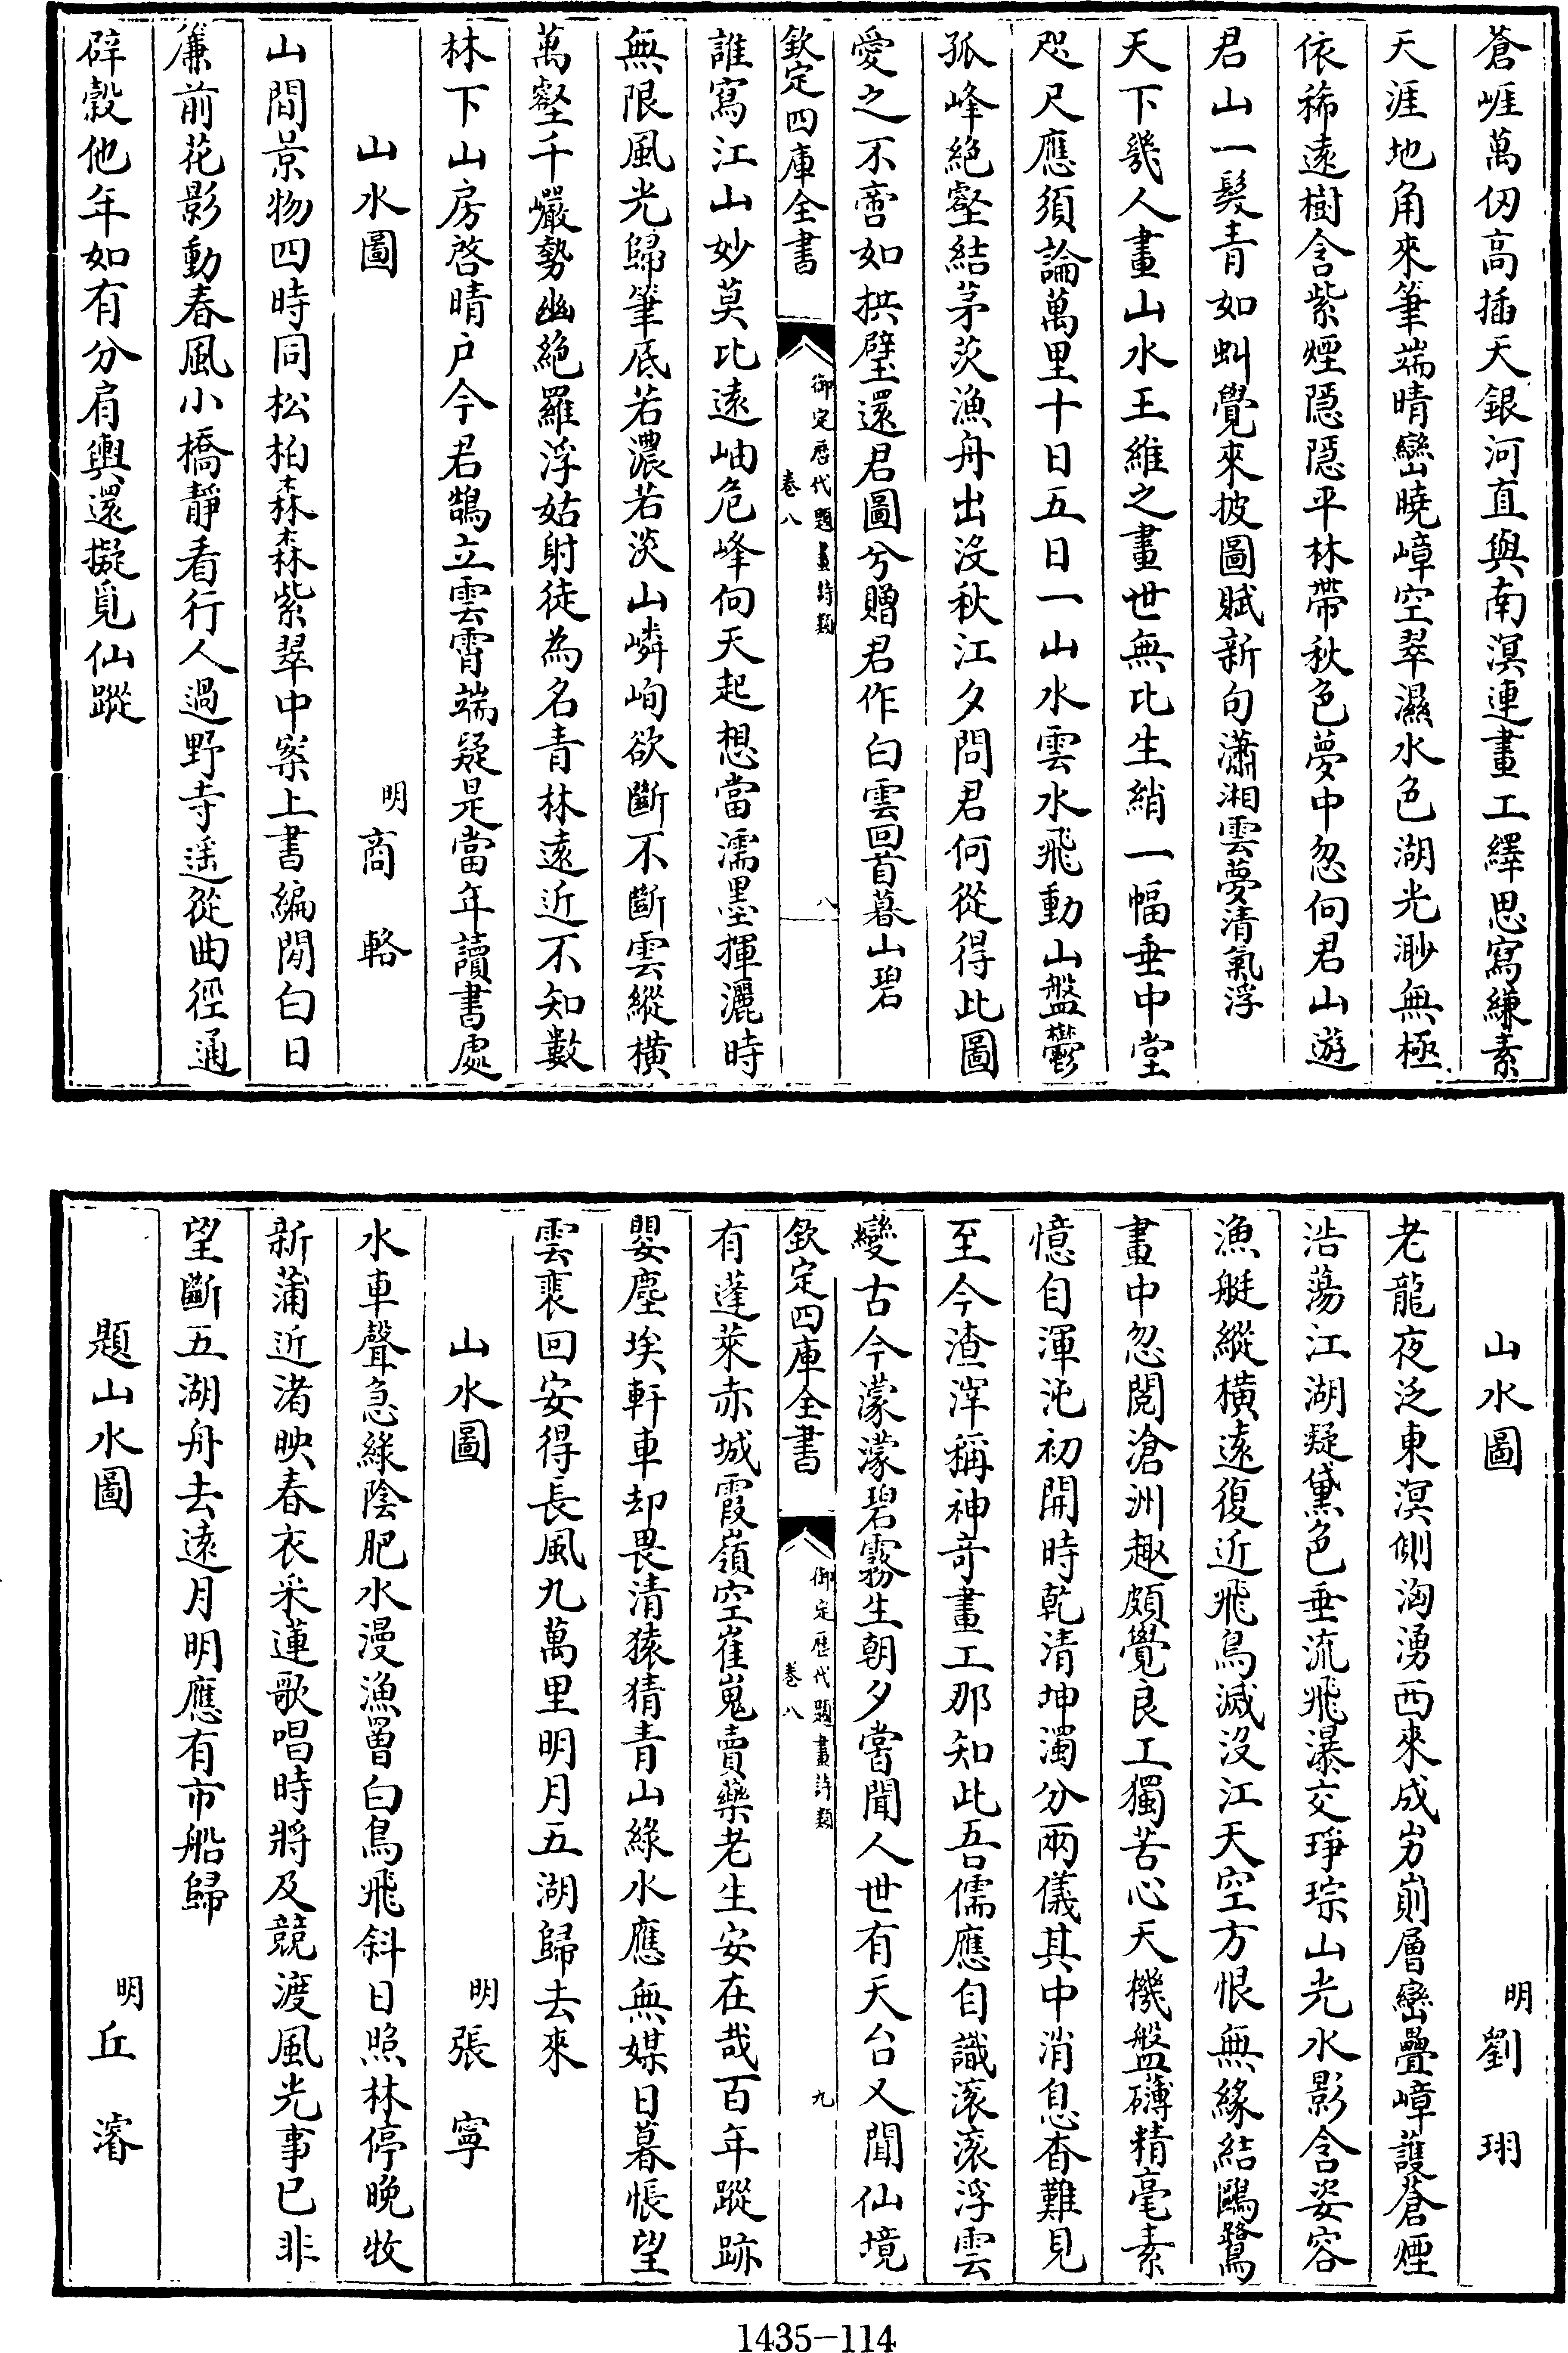 蒼崕萬仞髙插天銀河直與南溟連畫工繹思寫縑素
天涯地角來筆端晴巒曉嶂空翠濕水色湖光渺無極
依稀遠樹含紫煙隠隠平林帶秋色夢中忽向君山遊
君山一髪青如虯覺來披圖賦新句瀟湘雲夢清氣浮
天下幾人畫山水王維之畫世無比生綃一幅垂中堂
咫尺應須論萬里十日五日一山水雲水飛動山盤鬱
孤峰絶壑結茅茨漁舟出沒秋江夕問君何從得此圖
愛之不啻如拱璧還君圖兮贈君作白雲回首暮山碧
欽定四庫全書
御定歴代題畫詩類
卷八
八
誰寫江山妙莫比遠岫危峰向天起想當濡墨揮灑時
無限風光歸筆底若濃若淡山嶙峋欲斷不斷雲縱橫
萬壑千巖勢幽絶羅浮姑射徒為名青林遠近不知數
林下山房啓晴戸今君鵠立雲霄端疑是當年讀書處
山水圖
明商輅
山間景物四時同松柏森森紫翠中案上書編閒白日
簾前花影動春風小橋靜看行人過野寺遥從曲徑通
辟穀他年如有分肩輿還擬覓仙蹤
山水圖
明劉珝
老龍夜泛東溟側洶湧西來成屴崱層巒疊嶂護蒼煙
浩蕩江湖凝黛色垂流飛瀑交琤琮山光水影含姿容
漁艇縱橫遠復近飛鳥滅沒江天空方恨無緣結鷗鷺
畫中忽閲滄洲趣頗覺良工獨苦心天機盤礴精毫素
憶自渾沌初開時乾清坤濁分兩儀其中消息杳難見
至今渣滓稱神竒畫工那知此吾儒應自識滚滚浮雲
變古今濛濛碧霧生朝夕嘗聞人世有天台又聞仙境
欽定四庫全書
御定歴代題畫詩類
卷八
九
有蓬萊赤城霞嶺空崔嵬賣藥老生安在哉百年蹤跡
嬰塵埃軒車却畏清猿猜青山綠水應無媒日暮悵望
雲裵回安得長風九萬里明月五湖歸去來
山水圖
明張寧
水車聲急綠陰肥水漫漁罾白鳥飛斜日照林停晚牧
新蒲近渚映春衣采蓮歌唱時將及競渡風光事已非
望斷五湖舟去遠月明應有市船歸
題山水圖
明丘濬
1435-114